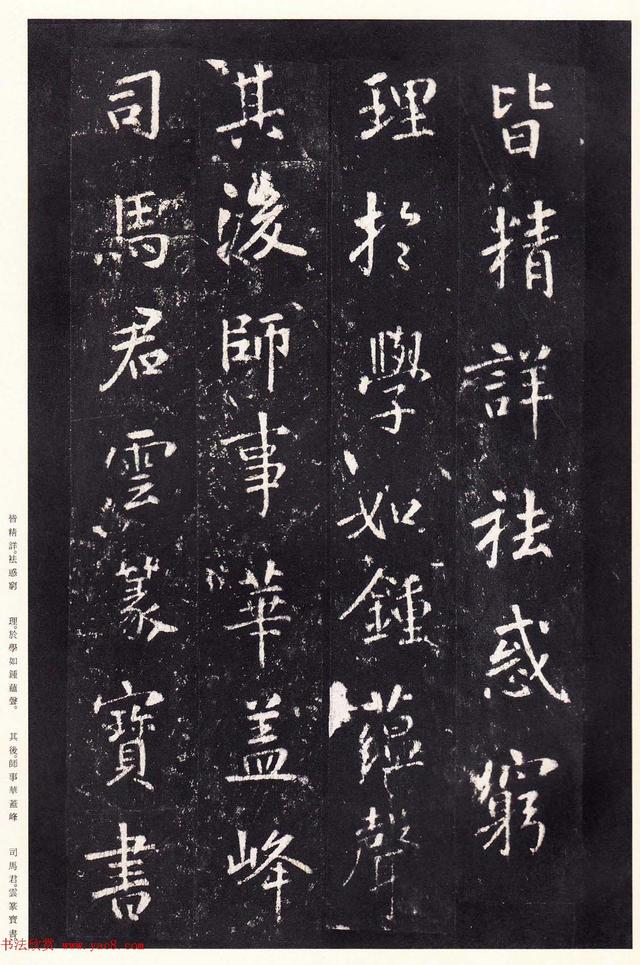 皆精詳祛惑窮
理於學如鍾蘊聲
其後師事華蓋峰
司馬君雲篆寶書
皆精詳。祛惑窮 理。於學如鍾蘊聲。 其後。師事華蓋峰 司馬君。雲篆寶書
书法欣赏 www.yac8.com